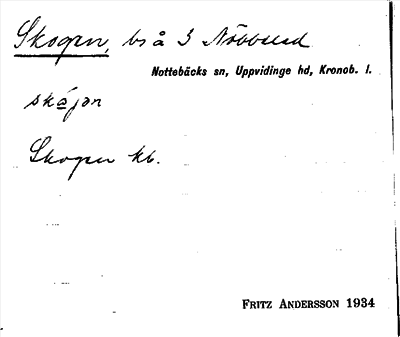 Skogen, bs å 3 Nöbbelad
Nottebäcks sn, Uppvidinge hd, Kronob. l.
skájən
Skogen kb.
FRITZ ANDERSSON 1934